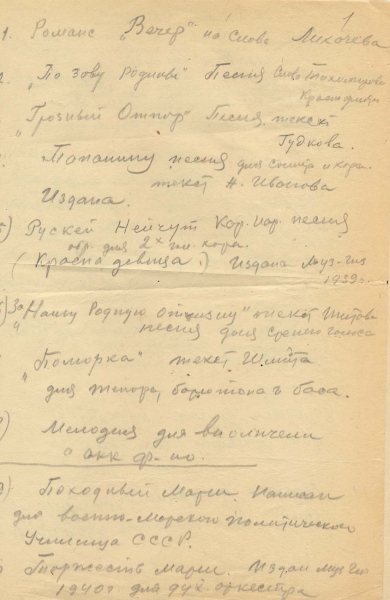 1
1. Романс „Вечер" на слова Лихачева
2. „По зову Родины" Песня Слова Тихомирова
Краснофлотца
„Грозный Отпор" Песня, текст
Гудкова.
Папанину песня для солиста и хора.
текст Н. Иванова
Издана.
5) Рускей Нейчут Кар. нар. песня
обр. для 2х гол. хора.
(Красна девица.) Издана Муз-Гиз
1939 г.
6) „За Нашу Родную Отчизну" текст Титова
песня для среднего голоса
„Поморка" текст Шмидта
для тенора, баритона и баса.
) Мелодия для виолончели
с акк. ф-но.
) Походный Марш. Написан
для военно-Морского политического
Училища СССР.
Марш. Издан Муз Гиз
1940 г. для дух. оркестра